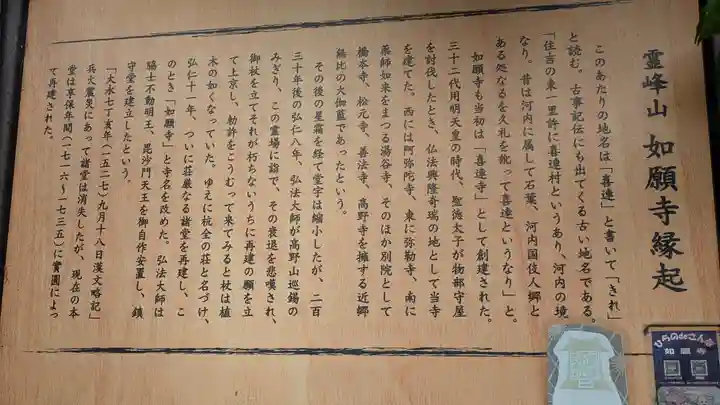 霊峰山 如願寺縁起
このあたりの地名は「喜連」と書いて「きれ」
と読む。古事記伝にも出てくる古い地名である。
「住吉の東一里許に喜連村というあり、河内の境
なり。昔は河内に属して石葉、河内国伎人郷と
ある処なるを久礼を訛って喜連というなり」と。
如願寺も当初は「喜連寺」として創建された。
三十二代用明天皇の時代、聖徳太子が物部守屋
を討伐したとき、仏法興隆奇瑞の地として当寺
を建てた。西には阿弥陀寺、東に弥勒寺、南に
薬師如来をまつる湯谷寺、そのほか別院として
橋本寺、松元寺、善法寺、高野寺を擁する近郷
無比の大伽藍であったという。
その後の星霜を経て堂宇は縮小したが、二百
三十年後の弘仁八年、弘法大師が高野山巡錫の
みぎり、この霊場に詣で、その衰退を悲嘆され、
御杖を立てそれが朽ちないうちに再建の願を立
て上京し、勅許をこうむって来てみると杖は植
木の如くなっていた。ゆえに杭全の荘と名づけ、
弘仁十一年、ついに荘厳なる諸堂を再建し、こ
のとき「如願寺」と寺名を改めた。弘法大師は
脇士不動明王、毘沙門天王を御自作安置し、鎮
守堂を建立したという。
「大永七丁亥年(一五二七)九月十八日漢文略記」
兵火震災にあって諸堂は消失したが、現在の本
堂は享保年間(一七一六〜一七三五)に實圓によっ
て再建された。
ひらのdeさんぽ
如願寺